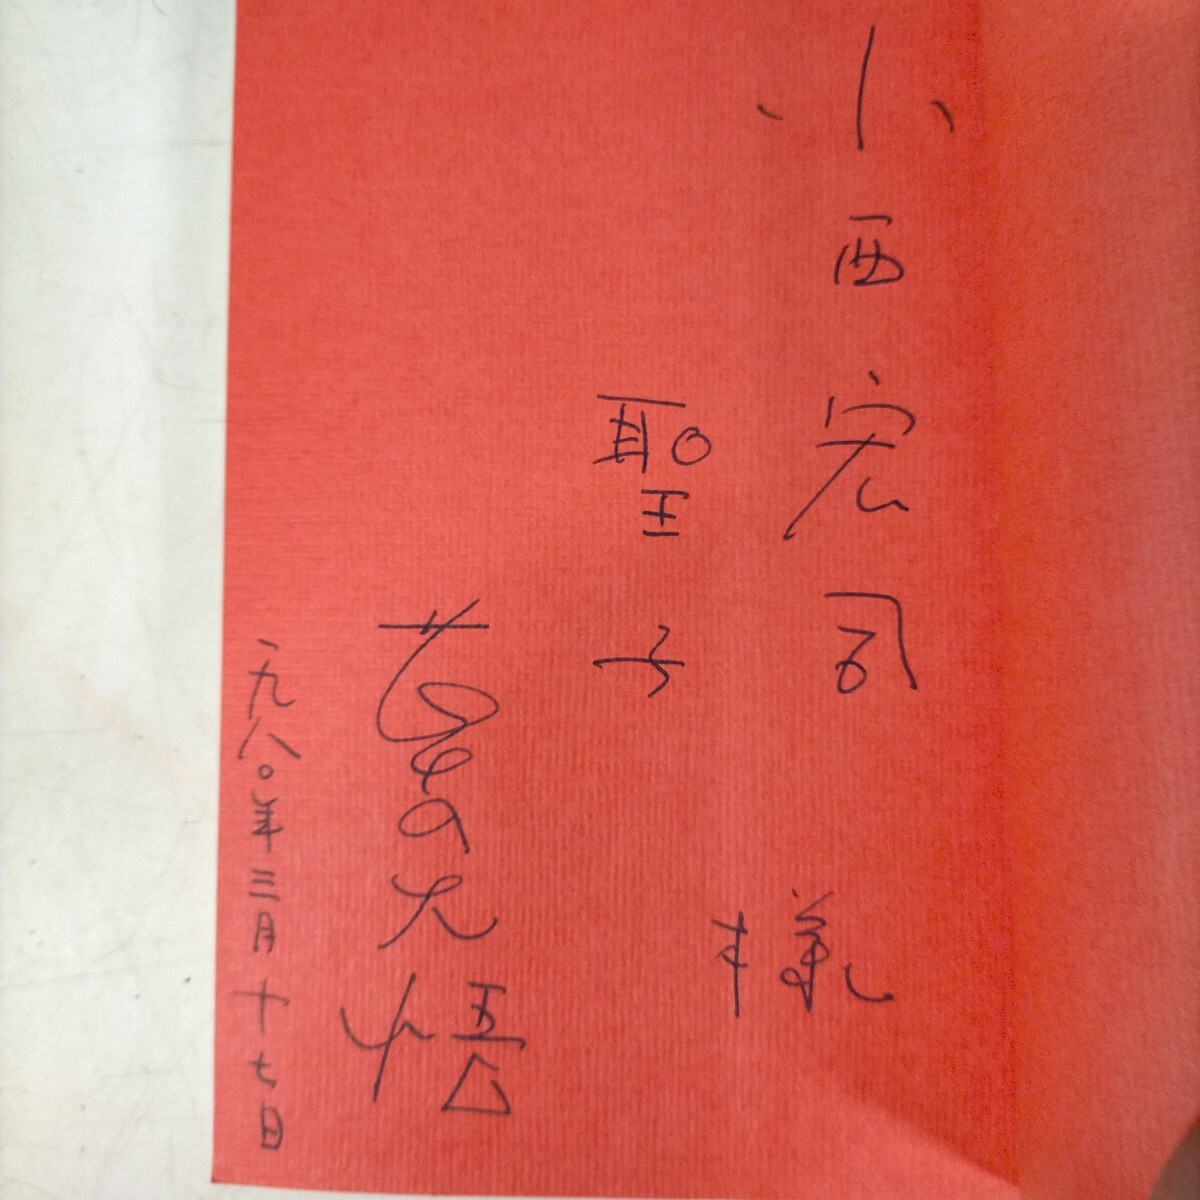 小西宏司
聖子
様
大悟
一九八〇年三月十七日